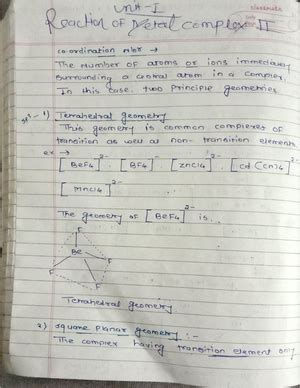 Unit-I
Reaction of Metal Complex-II
classmate
co-ordination nbr →
The number of atoms or ions immediately
surrounding a central atom in a complex.
In this case, two principle geometries
sp³ - 1) Tetrahedral geometry
This geometry is common complexes of
transition as well as non-transition elements
ex → [BeF4]²⁻ [BF4]⁻ [ZnCl4]²⁻ [Cd(CN)4]²⁻
[MnCl4]²⁻
The geometry of [BeF4]²⁻ is..
F
Be
F
F
F
Tetrahedral geometry
2) square planar geometry :-
The complex having transition element only